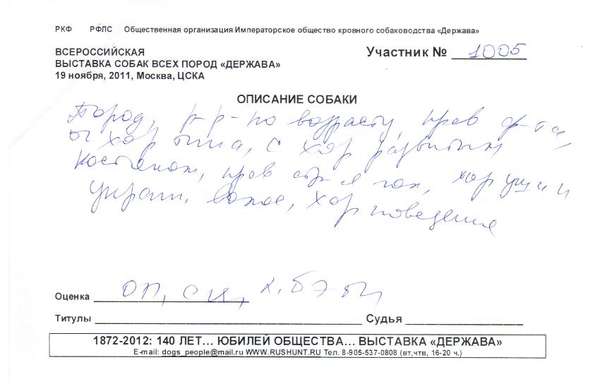 РКФ РФЛС Общественная организация Императорское общество кровного собаководства «Держава»
ВСЕРОССИЙСКАЯ
ВЫСТАВКА СОБАК ВСЕХ ПОРОД «ДЕРЖАВА»
19 ноября, 2011, Москва, ЦСКА
Участник № 1005
ОПИСАНИЕ СОБАКИ
Пород, р-р по возрасту, прав ф-та,
хор типа, с хор развитым
костяком, прав гол, хор уши и
хор поведение
Оценка ОП, СИ, К. БЭБИ
Титулы Судья
1872-2012: 140 ЛЕТ... ЮБИЛЕЙ ОБЩЕСТВА... ВЫСТАВКА «ДЕРЖАВА»
E-mail: dogs_people@mail.ru WWW.RUSHUNT.RU Тел. 8-905-537-0808 (вт,чтв, 16-20 ч.)